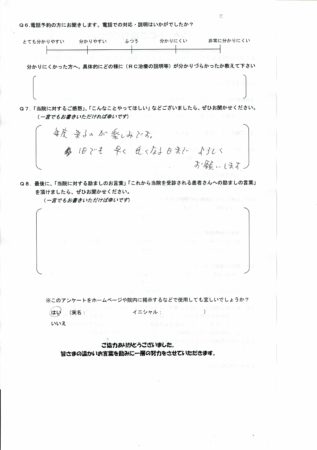 Q6.電話予約の方にお聞きします、電話での対応・説明はいかがでしたか?
とても分かりやすい 分かりやすい ふつう 分かりにくい 非常に分かりにくい
分かりにくかった方へ、具体的にどの様に(RC治療の説明等)が分かりづらかったか教えて下さい
Q7.「当院に対するご感想」、「こんなことやってほしい」などございましたら、ぜひお聞かせください。
(一言でもお書きいただければ幸いです)
毎度 来るのが楽しみです。
1日でも 早く 良くなる日まで よろしく
お願いします
Q8.最後に、「当院に対する励ましのお言葉」「これから当院を受診される患者さんへの励ましの言葉」
を頂けましたら、ぜひお聞かせください。
(一言でもお書きいただけば幸いです)
※このアンケートをホームページや院内に掲示するなどで使用しても宜しいでしょうか?
はい (実名: イニシャル: )
いいえ
ご協力ありがとうございました。
皆さまの温かいお言葉を励みに一層の努力をさせていただきます。